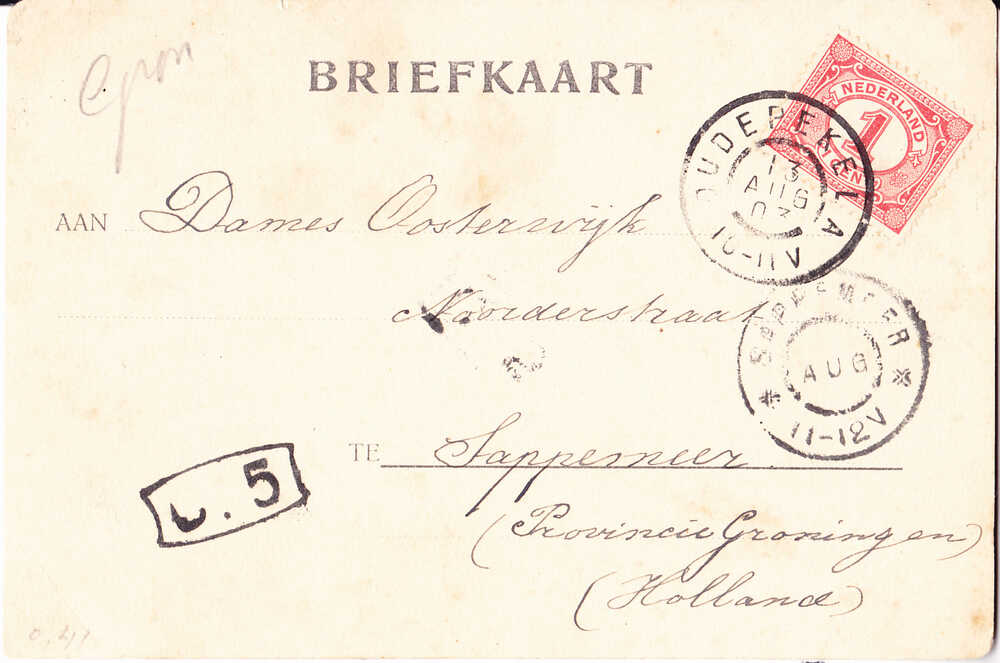 BRIEFKAART
NEDERLAND
1
CENT
OUDE PEKELA
13
AUG
03
10-11V
AAN Dames Oosterwijk
Noorderstraat
SAPPEMEER
AUG
11-12V
TE Sappemeer
5
(Provincie Groningen)
(Holland)